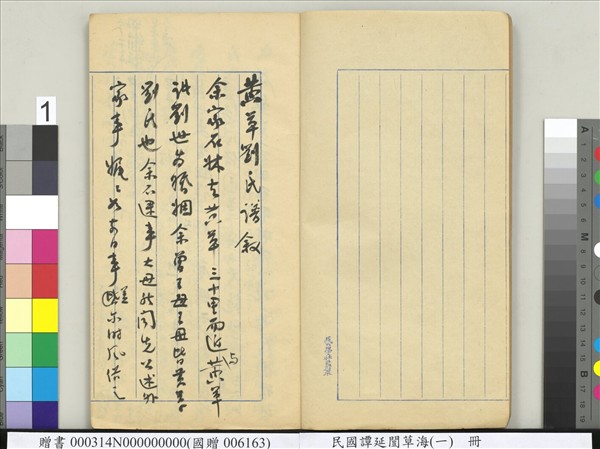 黃草劉氏譜敘
余家石牀去黃草三十里而近與黃草
劉世為婚姻余曾王母王母皆黃草
劉氏也余不逮事大母然聞先公述外
家事娓娓如前日事
贈書 000314N000000000(國贈 006163)
民國譚延闓草海(一) 冊
1
A 1 2 3 4 5 6 7 M 8 9 10 11 12 13 14 15 B 17 18 19